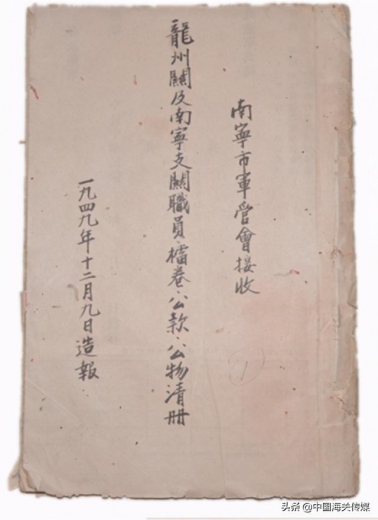 南寧市軍管會接收
龍州關及南寧支關職員、檔卷、公款、公物清冊
一九四九年十二月九日造報
1
头条@中國海关传媒